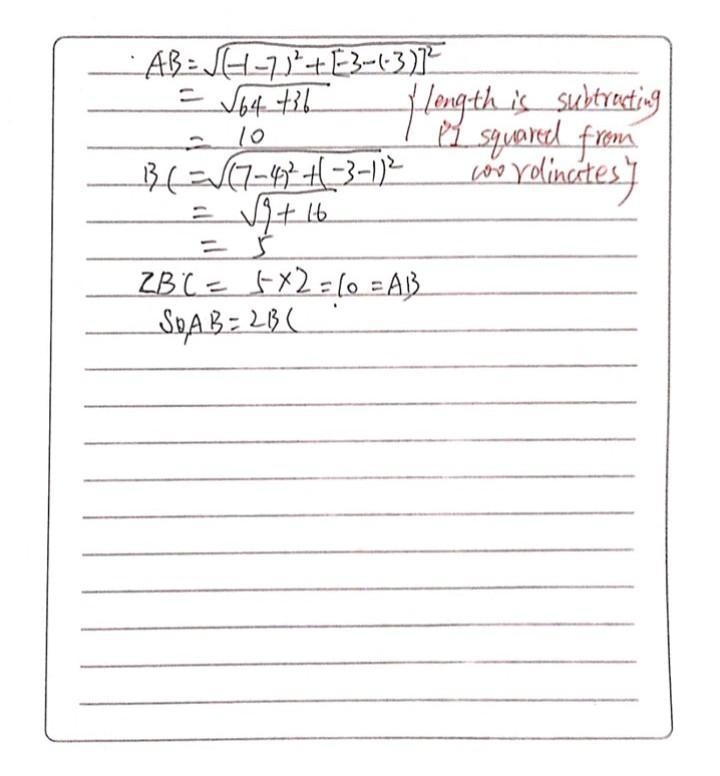 AB=√(-1-7)²+[-3-(-3)]²
= √64+36
= 10
{length is subtracting
PI squared from
coordinates}
BC=√(7-4)²+(-3-1)²
= √9+16
= 5
2BC= 5×2=10=AB
So,AB=2BC